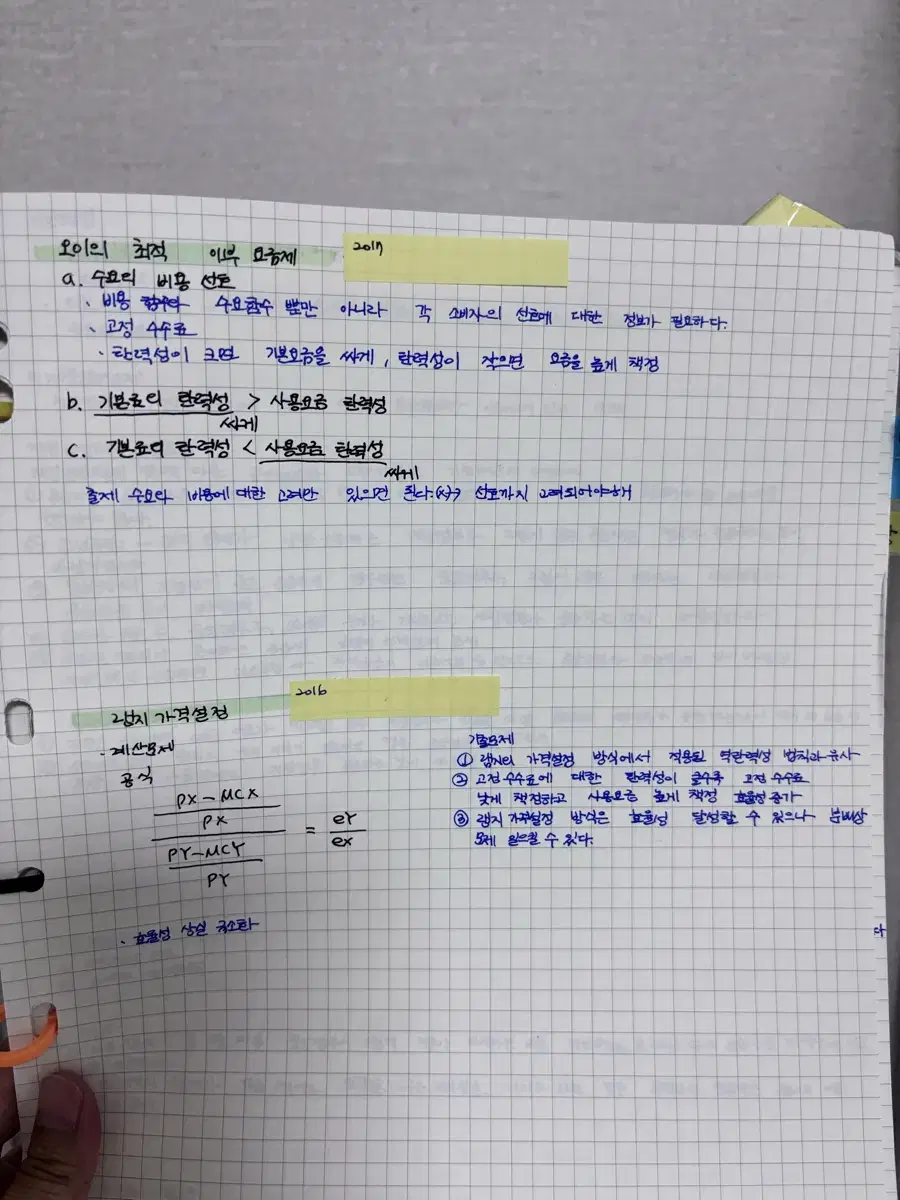 오이의 최적 이부 요금제
2017
a. 수요의 비용 선도
· 비용 함수와 수요함수 뿐만 아니라 각 소비자의 선호에 대한 정보가 필요하다.
· 고정 수수료
· 탄력성이 크면 기본요금을 싸게, 탄력성이 작으면 요금을 높게 책정
b. 기본료의 탄력성 > 사용요금 탄력성
싸게
c. 기본료의 탄력성 < 사용요금 탄력성
싸게
출제 수요와 비용에 대한 고려만 있으면 된다.(x)→ 선호까지 고려되어야해
램지 가격설정
2016
· 계산문제
공식
PX-MCX
PX
PY-MCY
PY
= eY
eX
· 효율성 상실 극소화
기출문제
① 램지의 가격설정 방식에서 적용된 역탄력성 법칙과 유사
② 고정수수료에 대한 탄력성이 클수록 고정 수수료
낮게 책정하고 사용요금 높게 책정 효율성 증가
③ 램지 가격설정 방식은 효율성 달성할 수 있으나 분배상
문제 일으킬 수 있다.
다